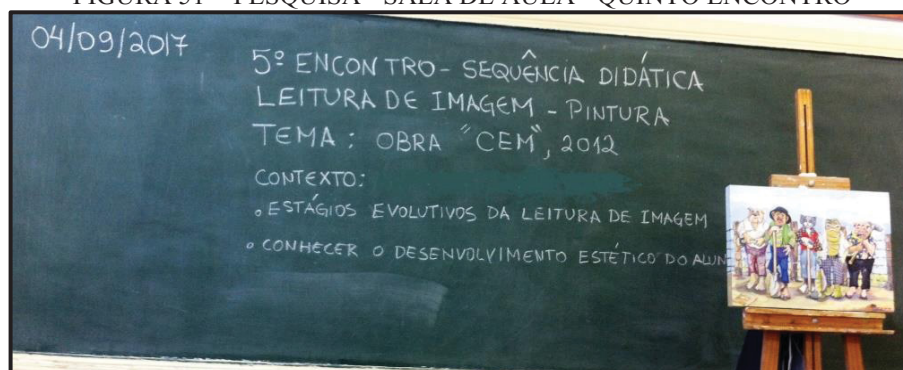 FIGURA 51 – PESQUISA - SALA DE AULA - QUINTO ENCONTRO
04/09/2017
5º ENCONTRO - SEQUÊNCIA DIDÁTICA
LEITURA DE IMAGEM - PINTURA
TEMA: OBRA "CEM", 2012
CONTEXTO:
• ESTÁGIOS EVOLUTIVOS DA LEITURA DE IMAGEM
• CONHECER O DESENVOLVIMENTO ESTÉTICO DO ALUN